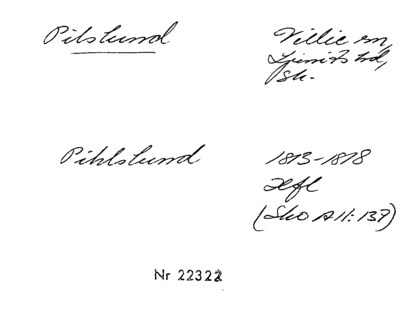 Pilslund
Villie sn,
Ljunits hd,
Sk.
Pihlslund
1813-1818
Hfl
(Sko A II: 137)
Nr 22322